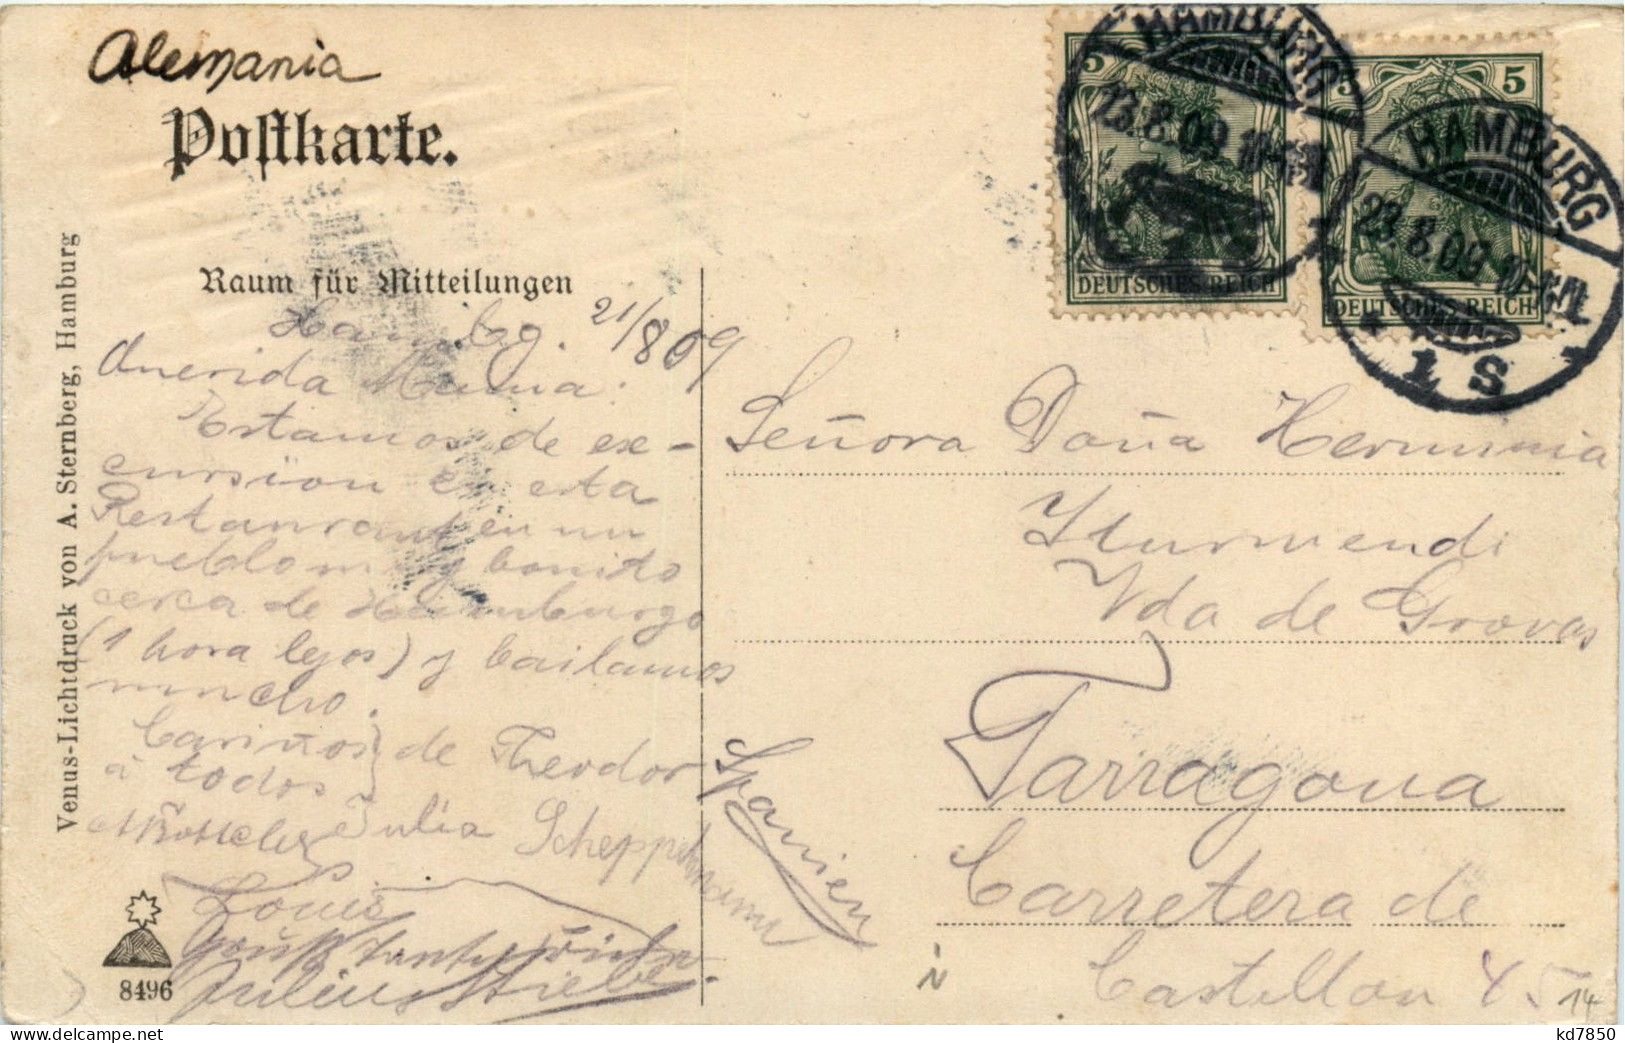 Alemania
Postkarte.
Raum für Mitteilungen
Hambg. 21/8 09
Querida Mamia:
Estamos de ex-
cursion en esta
Restaurant en un
pueblo muy bonito
cerca de Hamburgo
(1 hora lejos) y bailamos
mucho.
Cariños de Theodor
á todos
Julia Scheppelmann
Louis
Julius
Venus-Lichtdruck von A. Sternberg, Hamburg
8496
HAMBURG
23.8.09.10-11
1
5
DEUTSCHES REICH
HAMBURG
23.8.09.10-11
1 S
5 5
DEUTSCHES REICH
Señora Doña Herminia
Yturmendi
Vda de Grovas
Tarragona
Carretera de
Castellon 45
Spanien
14
kd7850